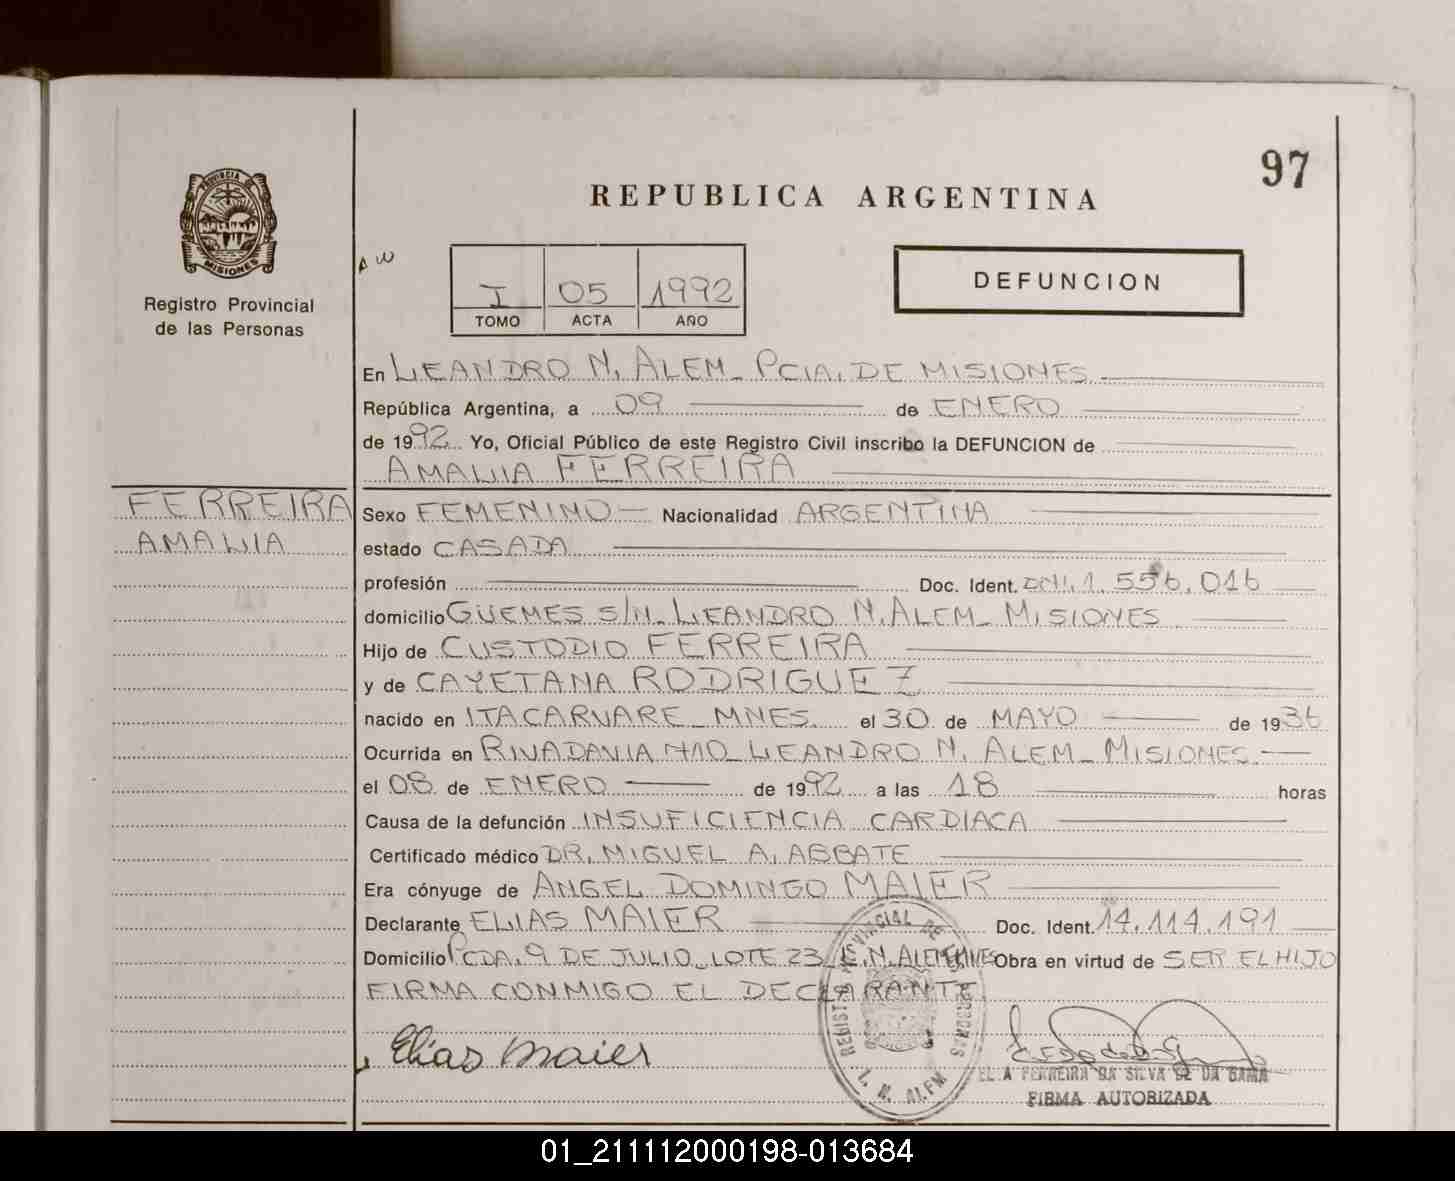 97
REPUBLICA ARGENTINA
PROVINCIA DE
MISIONES
Registro Provincial
de las Personas
I 05 1992
TOMO ACTA AÑO
DEFUNCION
En LEANDRO N. ALEM_ PCIA. DE MISIONES
República Argentina, a 09 de ENERO
de 1992 Yo, Oficial Público de este Registro Civil inscribo la DEFUNCION de
AMALIA FERREIRA
FERREIRA
AMALIA
Sexo FEMENINO Nacionalidad ARGENTINA
estado CASADA
profesión Doc. Ident. DNI. 1.556.016
domicilio GÜEMES S/N_ LEANDRO N. ALEM_ MISIONES
Hijo de CUSTODIO FERREIRA
y de CAYETANA RODRIGUEZ
nacido en ITACARUARE_ MNES. el 30 de MAYO de 1936
Ocurrida en RIVADAVIA 410_ LEANDRO N. ALEM_ MISIONES
el 08 de ENERO de 1992 a las 18 horas
Causa de la defunción INSUFICIENCIA CARDIACA
Certificado médico DR. MIGUEL A. ABBATE
Era cónyuge de ANGEL DOMINGO MAIER
Declarante ELIAS MAIER Doc. Ident. 14.114.191
Domicilio PCDA. 9 DE JULIO_ LOTE 23_ L.N. ALEM Obra en virtud de SER EL HIJO
FIRMA CONMIGO EL DECLARANTE
Elias Maier
REGISTRO PROVINCIAL DE LAS PERSONAS
L. N. ALEM
A FERREIRA DA SILVA DE DA GAMA
FIRMA AUTORIZADA
01_211112000198-013684